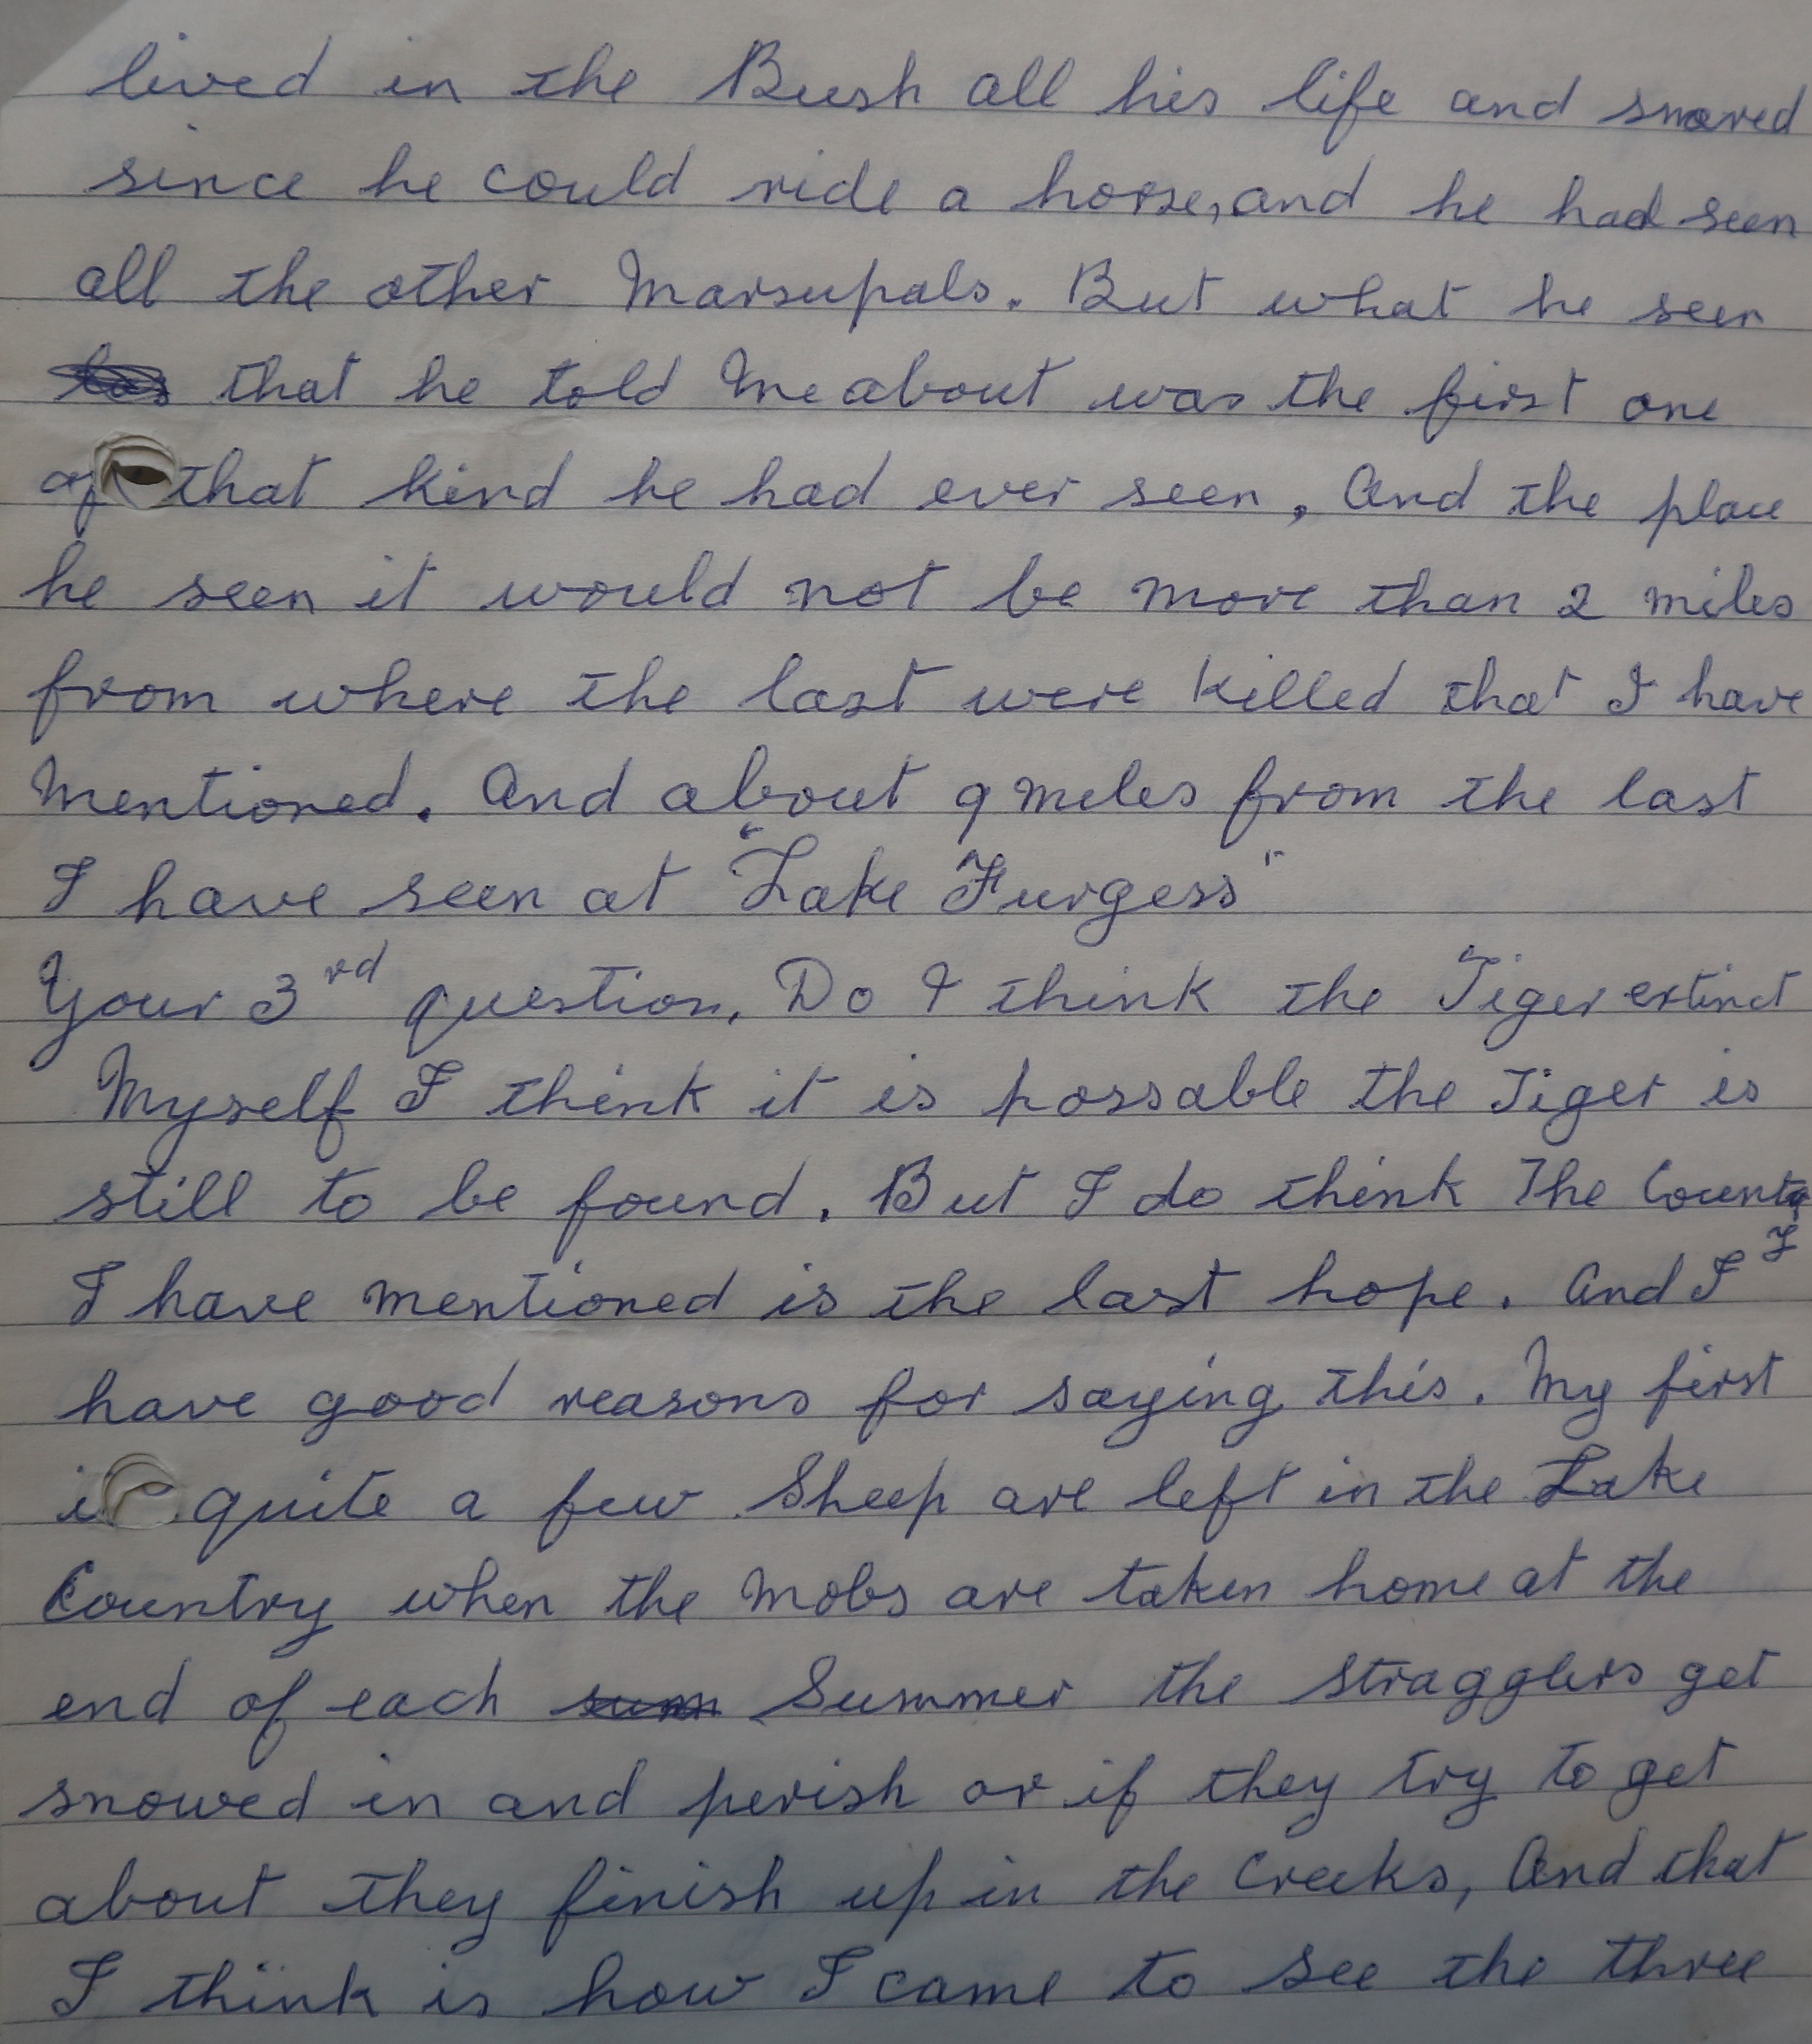 lived in the Bush all his life and snared
since he could ride a horse, and he had seen
all the other Marsupals. But what he seen
that he told Me about was the first one
of that kind he had ever seen, And the place
he seen it would not be more than 2 miles
from where the last were killed that I have
Mentioned. And about 9 miles from the last
I have seen at "Lake Furgess"
Your 3rd question, Do I think the Tiger extinct
Myself I think it is possable the Tiger is
still to be found. But I do think The Country
I have mentioned is the last hope. And I I
have good reasons for saying this. My first
is quite a few Sheep are left in the Lake
Country when the Mobs are taken home at the
end of each sum Summer the stragglers get
snowed in and perish or if they try to get
about they finish up in the Creeks, And that
I think is how I came to see the three